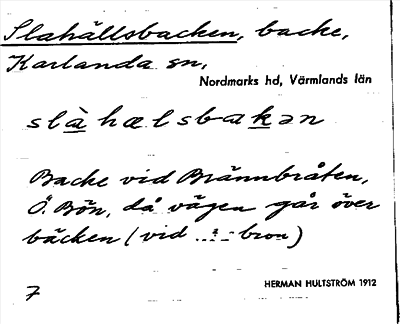 Slahällsbacken, backe,
Karlanda sn,
Nordmarks hd, Värmlands län
slàhælsbakən
Backe vid Brännbråten,
Ö. Bön, då vägen går över
bäcken (vid ..?.. bron)
HERMAN HULTSTRÖM 1912
7